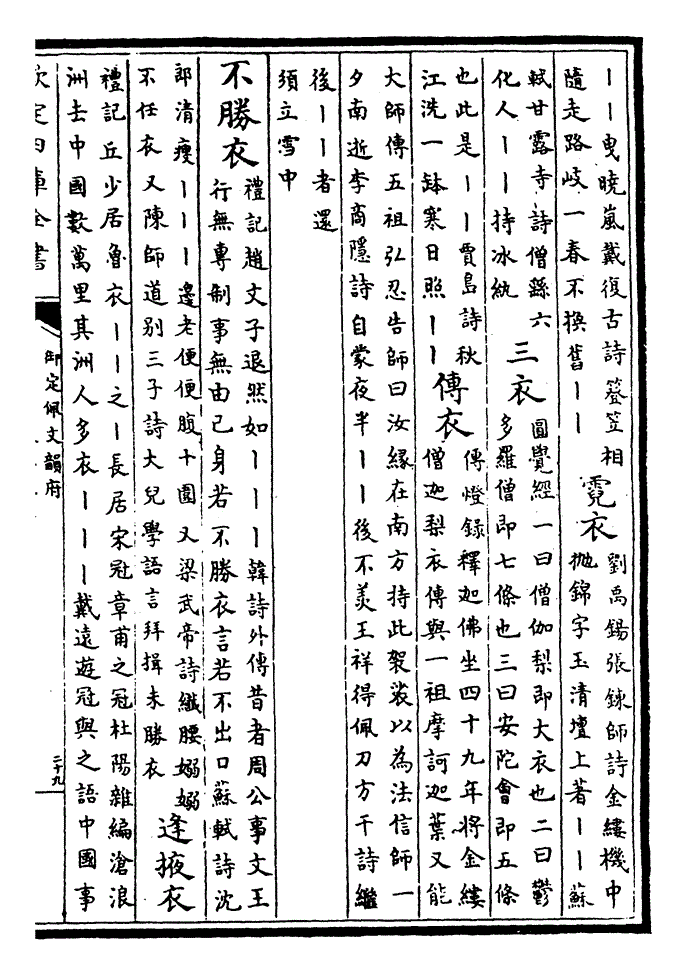 丨丨曳曉嵐戴復古詩簦笠相
隨走路岐一春不換舊丨丨
霓衣
劉禹錫張鍊師詩金縷機中
拋錦字玉清壇上著丨丨蘇
軾甘露寺詩僧繇六
化人丨丨持冰紈
三衣
圓覺經一曰僧伽梨即大衣也二曰鬱
多羅僧即七條也三曰安陀會即五條
也此是丨丨賈島詩秋
江洗一鉢寒日照丨丨
傳衣
傳燈錄釋迦佛坐四十九年將金縷
僧迦梨衣傳與一祖摩訶迦葉又能
大師傳五祖弘忍告師曰汝緣在南方持此袈裟以為法信師一
夕南逝李商隱詩自蒙夜半丨丨後不羡王祥得佩刀方干詩繼
後丨丨者還
須立雪中
不勝衣
禮記趙文子退然如丨丨丨韓詩外傳昔者周公事文王
行無專制事無由己身若不勝衣言若不出口蘇軾詩沈
郎清瘦丨丨丨邊老便便腹十圍又梁武帝詩纖腰嫋嫋
不任衣又陳師道别三子詩大兒學語言拜揖未勝衣
逢掖衣
禮記丘少居魯衣丨丨之丨長居宋冠章甫之冠杜陽雜編滄浪
洲去中國數萬里其洲人多衣丨丨丨戴遠遊冠與之語中國事
欽定四庫全書
御定佩文韻府
二十九